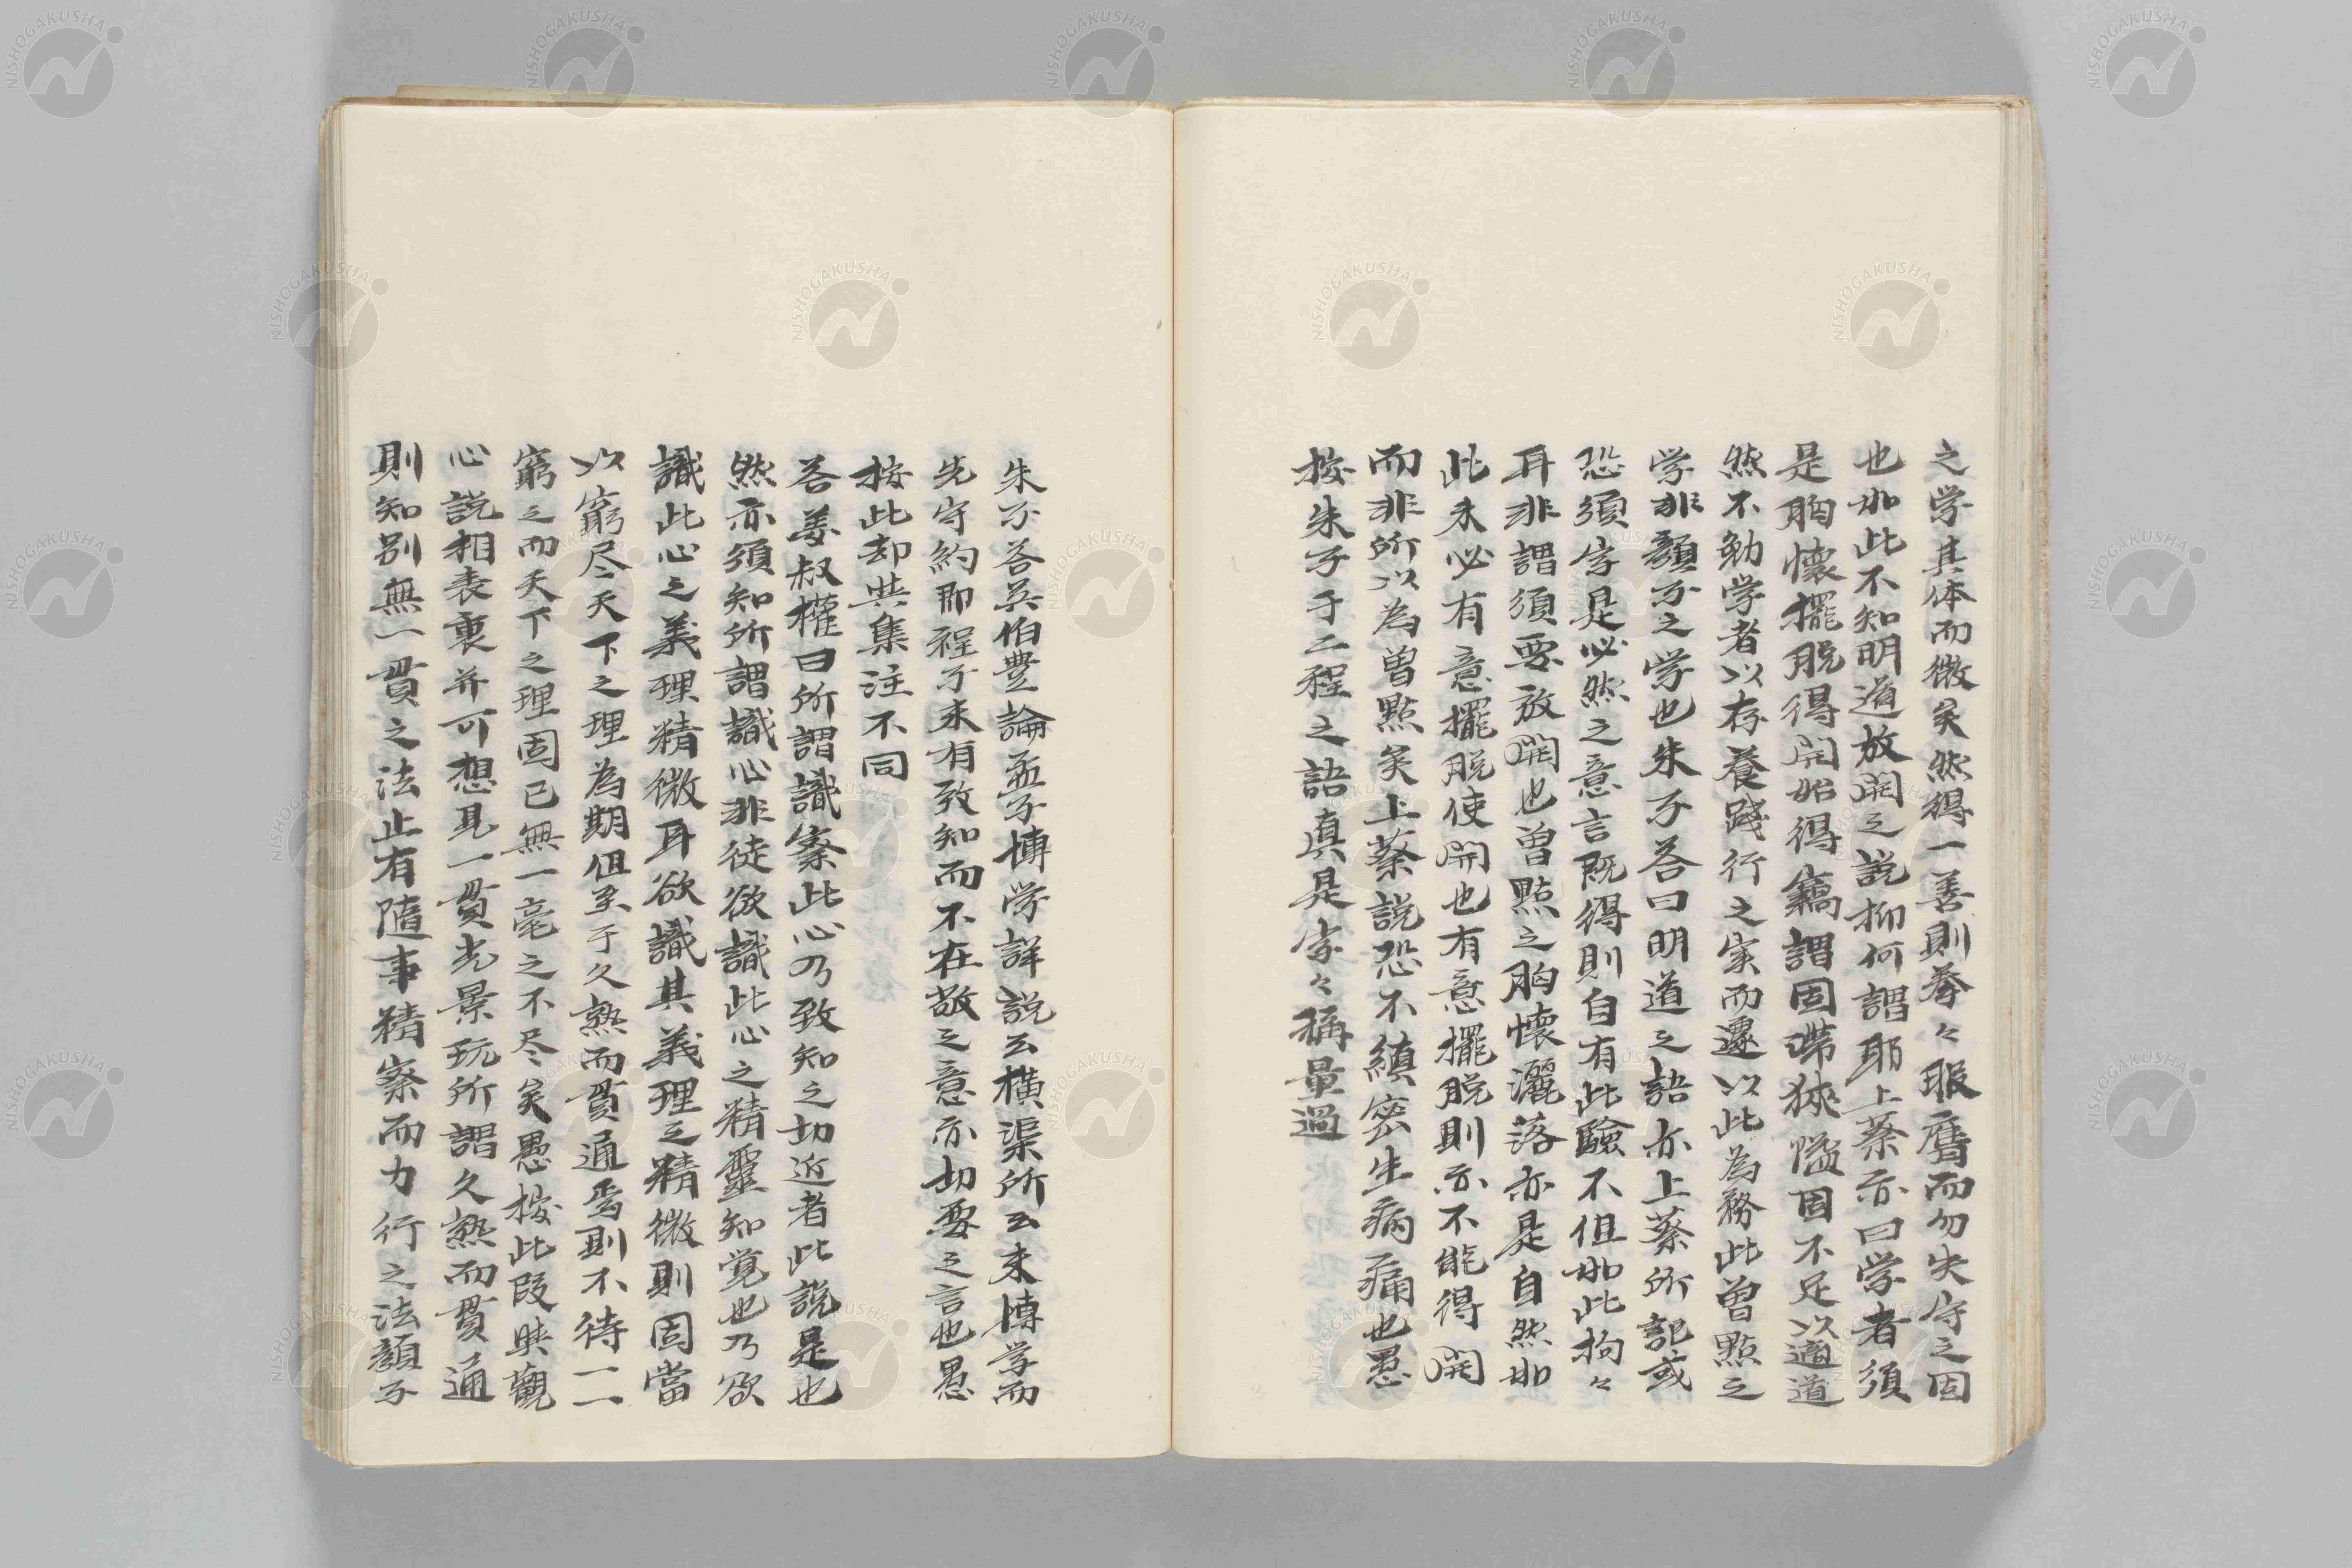 之学其体而微矣然得一善則拳々服膺而勿失守之固
也如此不知明道放開之説抑何謂耶上蔡亦曰学者須
是胸懐擺脱得開始得窃謂固滞狭隘固不足以適道
然不勉学者以存養踐行之実而遽以此為務此曽點之
学非顔子之学也朱子答曰明道之語亦上蔡所記或
恐須字是必然之意言既得則自有此驗不但如此拘々
耳非謂須要放開也曽點之胸懐灑落亦是自然如
此未必有意擺脱使開也有意擺脱則亦不能得開
而非所以為曽點矣上蔡説恐不縝密生病痛也愚
按朱子于二程之語真是字々稱量過
朱子答呉伯豊論孟子博学詳説云横渠所云未博学而
先守約即程子未有致知而不在敬之意亦切要之言也愚
按此却與集注不同
答姜叔權曰所謂識察此心乃致知之切近者此説是也
然亦須知所謂識心非徒欲識此心之精靈知覚也乃欲
識此心之義理精微耳欲識其義理之精微則固當
以窮尽天下之理為期但至于久熟而貫通焉則不待一一
窮之而天下之理固已無一毫之不尽矣愚按此段與觀
心説相表裏并可想見一貫光景玩所謂久熟而貫通
則知別無一貫之法止有隨事精察而力行之法顔子
NISHOGAKUSHA